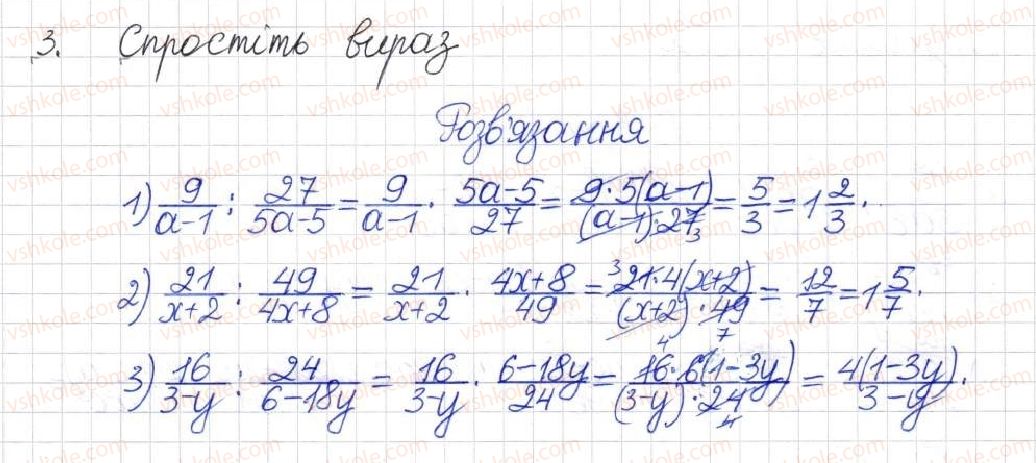 3. Спростіть вираз
Розв'язання
1) 9/(a-1) : 27/(5a-5) = 9/(a-1) · (5a-5)/27 = (9·5(a-1))/((a-1)·27) 3 = 5/3 = 1 2/3.
2) 21/(x+2) : 49/(4x+8) = 21/(x+2) · (4x+8)/49 = 3 (21·4(x+2))/((x+2)·49) 7 = 12/7 = 1 5/7.
3) 16/(3-y) : 24/(6-18y) = 16/(3-y) · (6-18y)/24 = 4 (16·6(1-3y))/((3-y)·24) 4 = 4(1-3y)/(3-y).